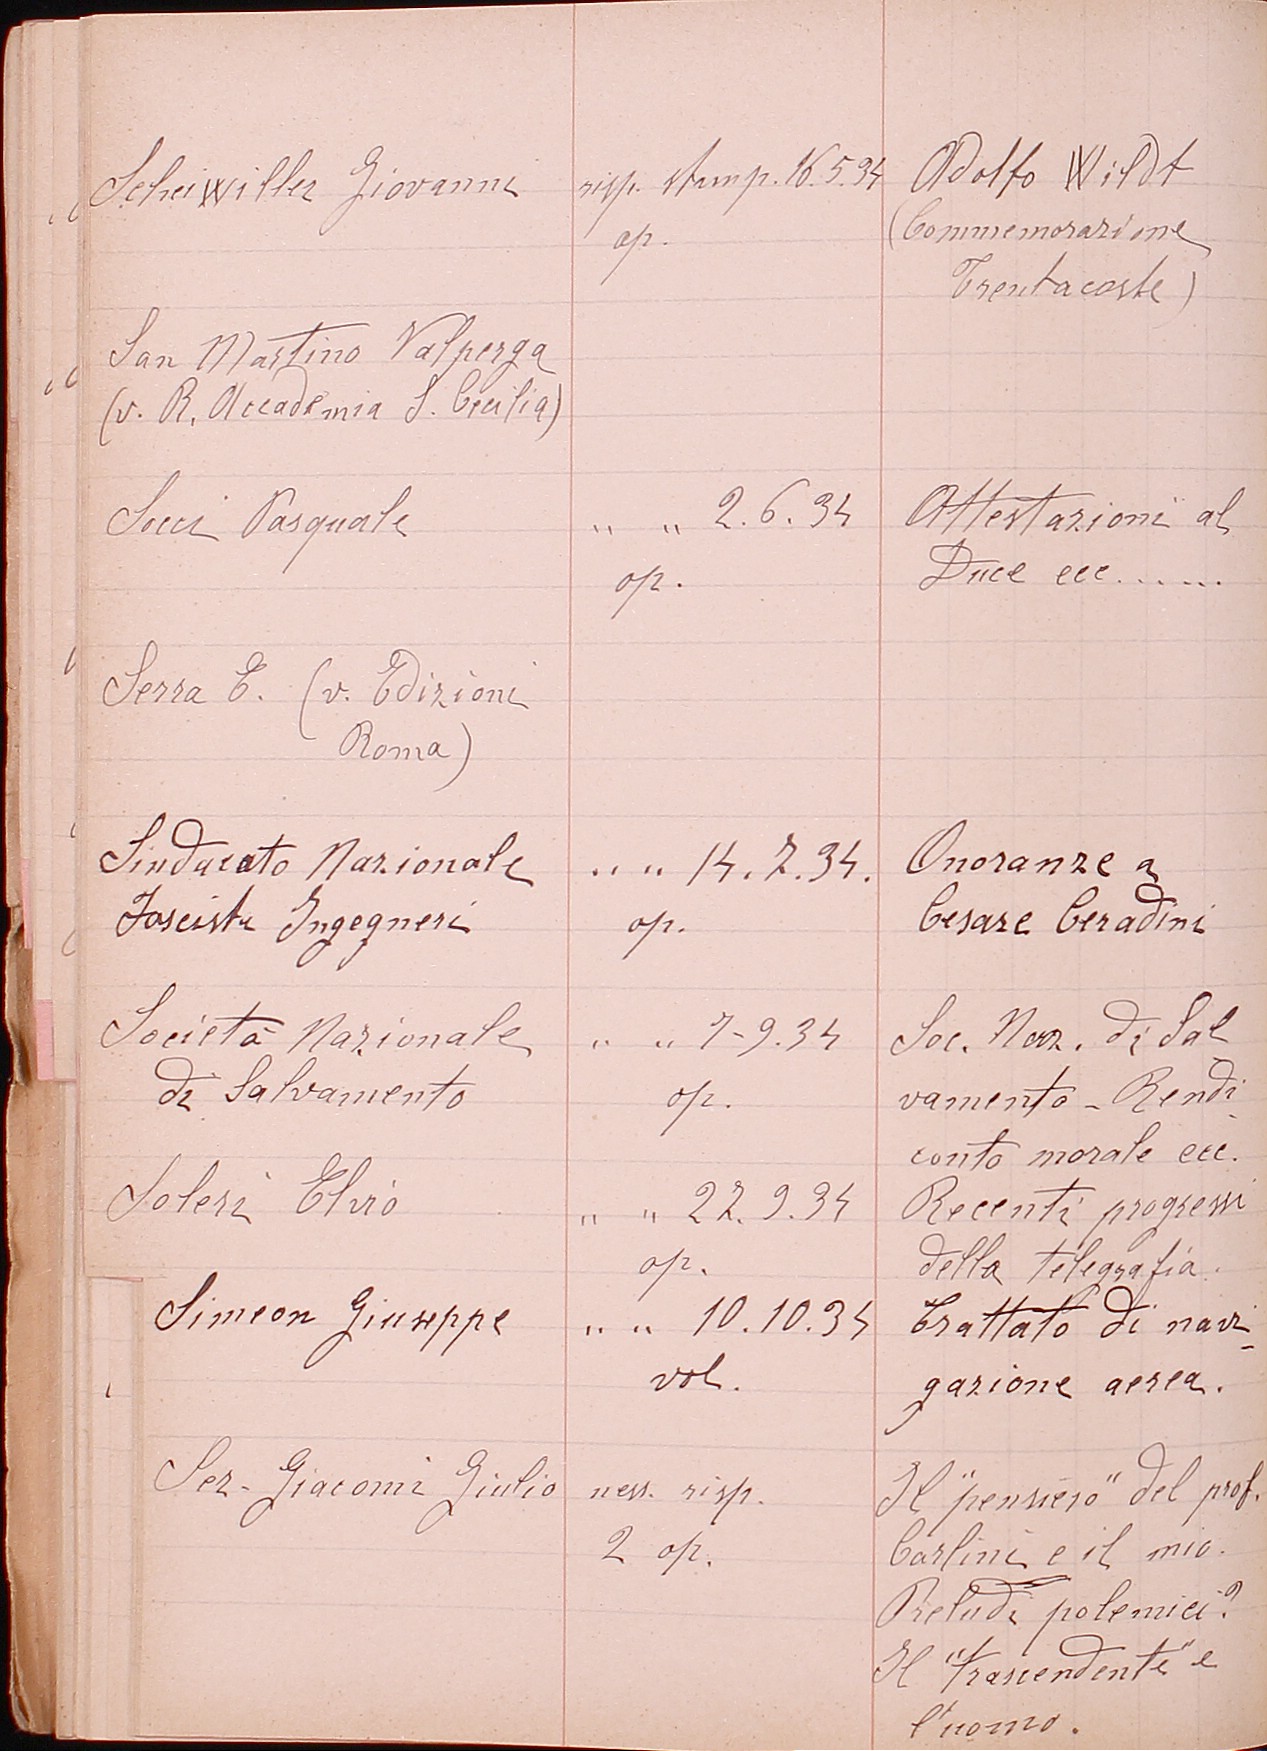 Scheiwiller Giovanni risp. stamp. 16.5.34 Adolfo Wildt
op. (Commemorazione
Trentacoste)
San Martino Valperga
(v. R. Accademia S. Cecilia)
Socci Pasquale " " 2.6.34 Attestazioni al
op. Duce ecc......
Serra E. (v. Edizioni
Roma)
Sindacato Nazionale " " 14.7.34. Onoranze a
Fascista Ingegneri op. Cesare Ceradini
Società Nazionale " " 7-9.34 Soc. Naz. di Sal
di Salvamento op. vamento - Rendi
conto morale ecc.
Soleri Elvio " " 22.9.34 Recenti progressi
op. della telegrafia.
Simeon Giuseppe " " 10.10.34 Trattato di navi-
vol. gazione aerea.
Ser-Giacomi Giulio ness. risp. Il "pensiero" del prof.
2 op. Carlini e il mio.
Preludi polemici?
Il "trascendente" e
l'uomo.